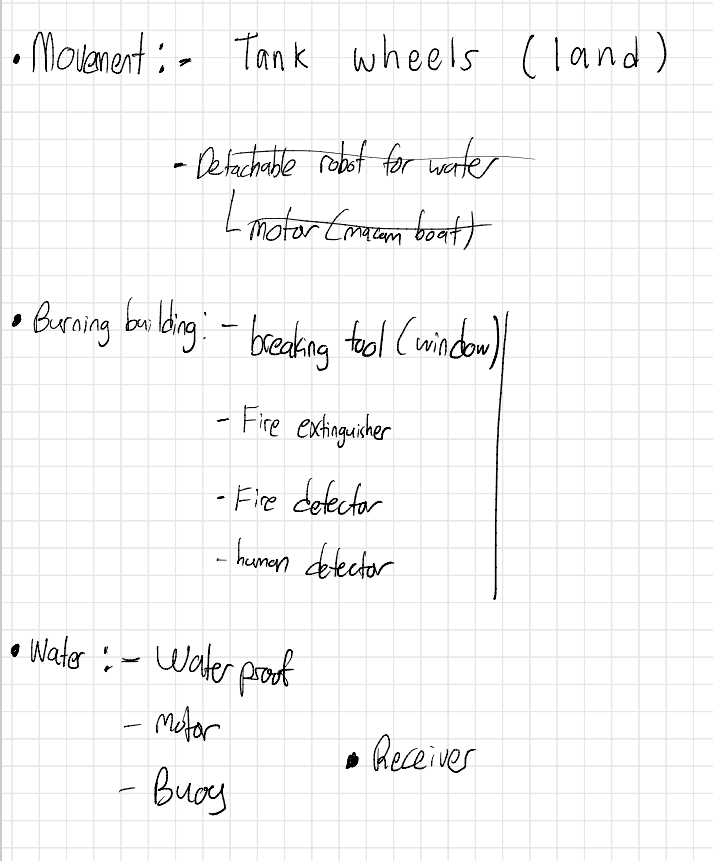 • Movement :- Tank wheels (land)
- Detachable robot for water
motor (macam boat)
• Burning building: - breaking tool (window)
- Fire extinguisher
- Fire detector
- human detector
• Water :- Water proof
- Motor
- Buoy
• Receiver